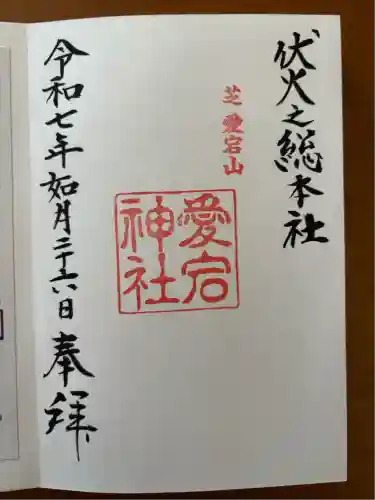 伏火之総本社
芝愛宕山
愛宕
神社
令和七年如月二十六日奉拝